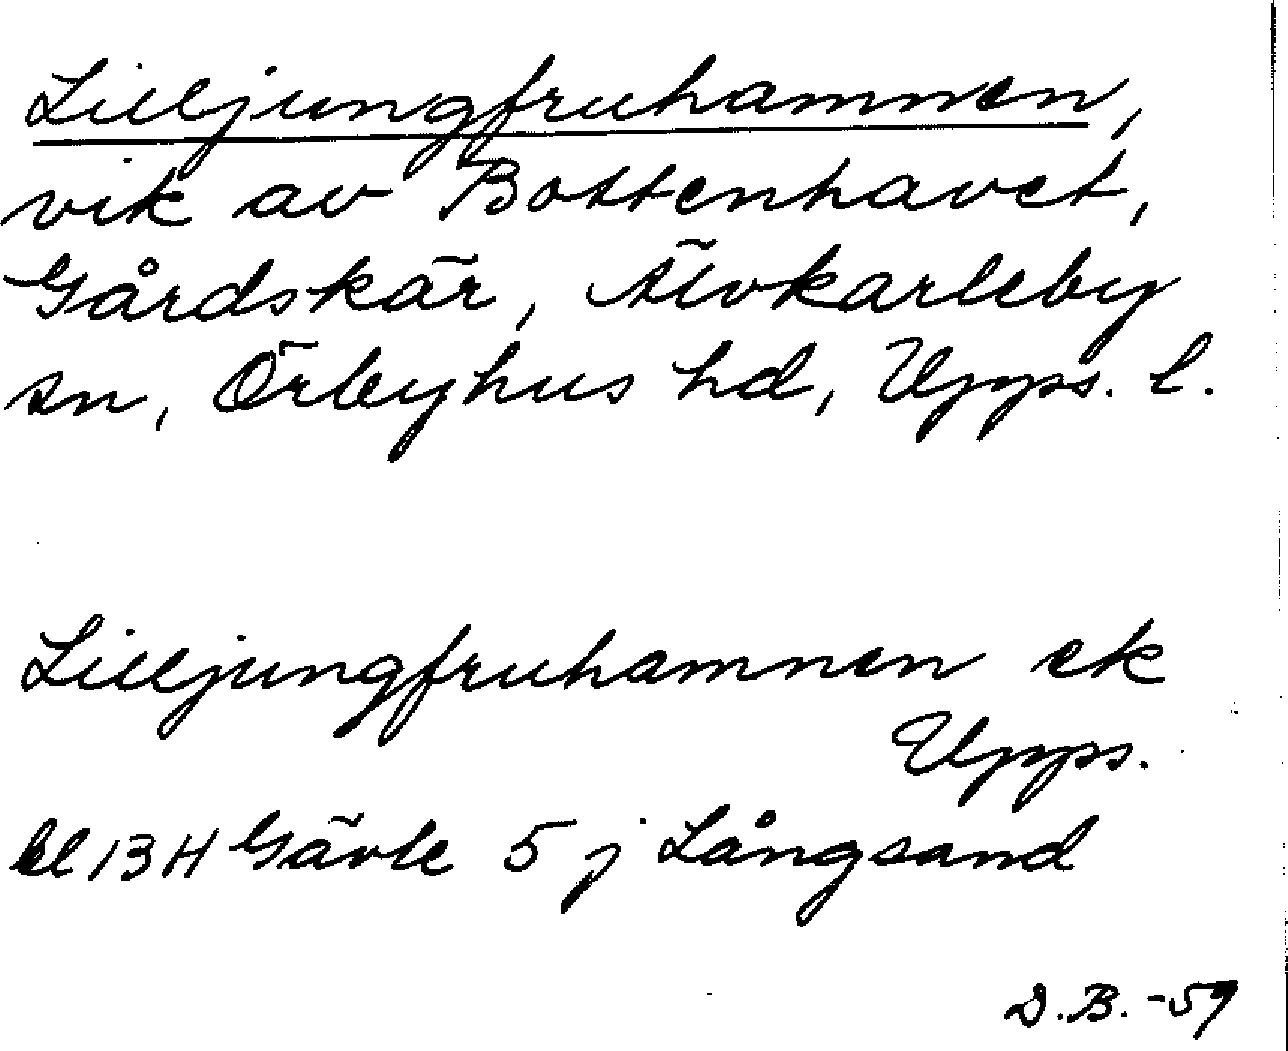 Lilljungfruhamnen,
vik av Bottenhavet,
Gårdskär, Älvkarleby
sn, Örbyhus hd, Upps. l.
Lilljungfruhamnen ek
Upps.
bl 13 H Gävle 5 j Långsand
D.B. -59